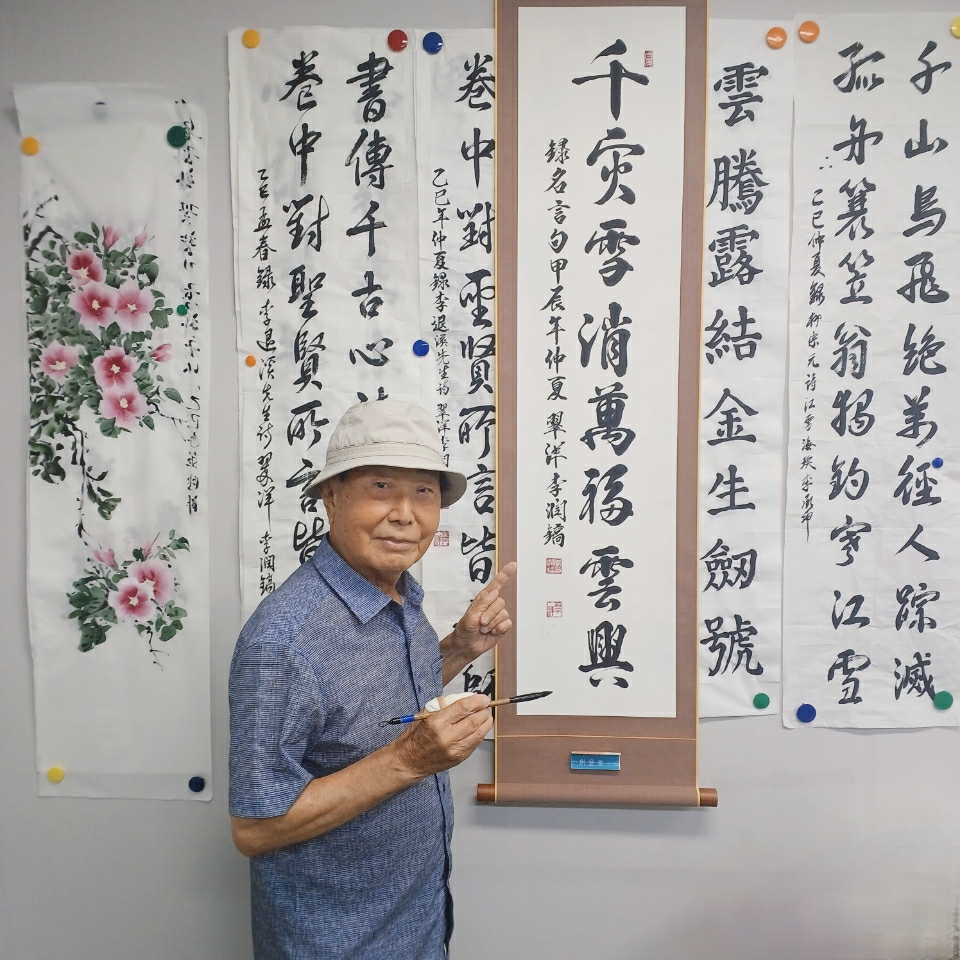 千山鳥飛絶萬徑人踪滅
孤舟簑笠翁獨釣寒江雪
乙巳仲夏錄柳宗元詩江雪
雲騰露結金生劒號
千灾雪消萬福雲興
錄名言句甲辰年仲夏 翠洋李潤鎬
이윤호
卷中對聖賢所言皆
乙巳年仲夏錄李退溪先生詩 翠洋李
書傳千古心
卷中對聖賢所言皆
乙巳孟春錄 李退溪先生詩 翠洋 李潤鎬